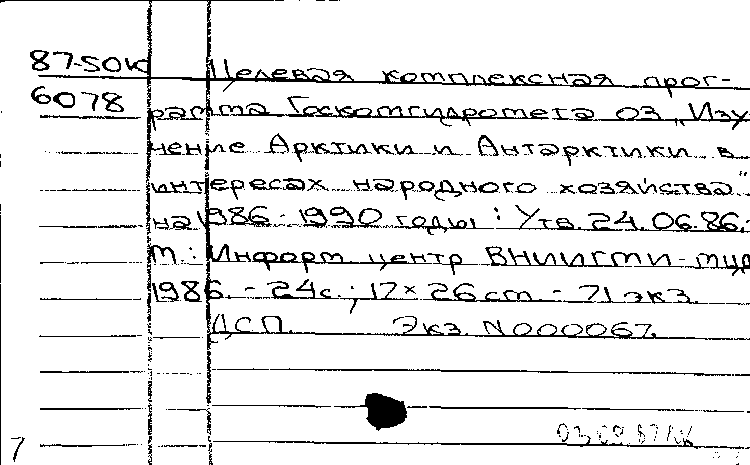 87-50к Целевая комплексная прог-
6078 рамма Госкомгидромета 03 „Изу
чение Арктики и Антарктики в
интересах народного хозяйства"
на 1986-1990 годы : Утв. 24.06.86.-
М.: Информ. центр ВНИИГМИ-МЦД
1986. - 24с.; 17×26см. - 71 экз.
ДСП. Экз. N000067.
7